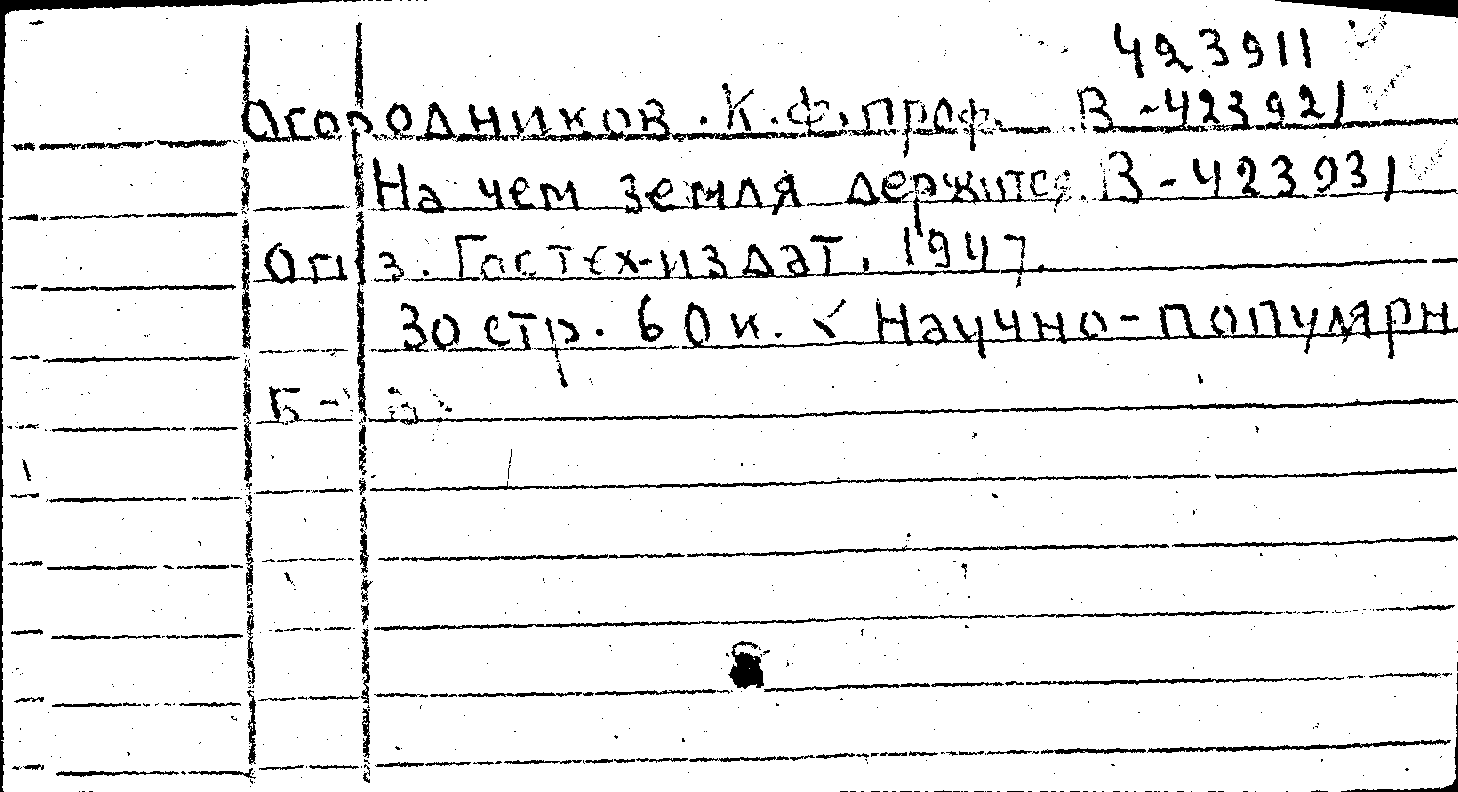 423911
Огородников. К.Ф. проф. В-423921
На чем земля держится. В-423931
Огиз. Гостех-издат. 1947.
30 стр. 60 к. Научно-популярн
Б-